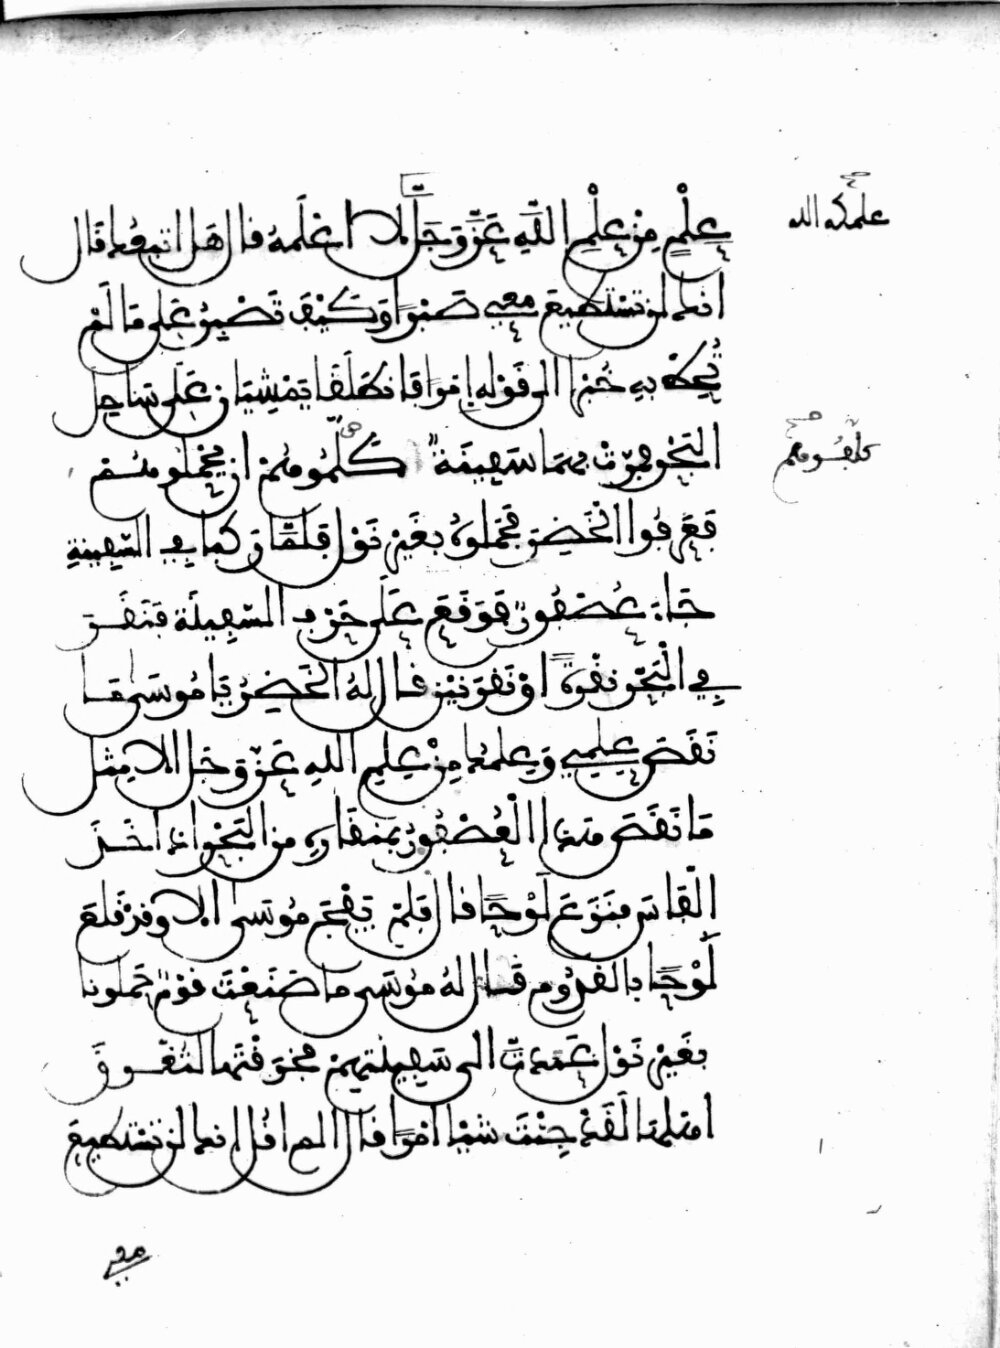 عِلْمٍ مِنْ عِلْمِ اللَّهِ عَزَّ وَجَلَّ لا اعْلَمهُ قال هَل اتبعك قَال
علمكه الله
انك لن تسْتطيعَ معِي صَبْرًا وَكَيْفَ تَصْبِرُ عَلى مَا لَمْ
تُحِطْ بِهِ خُبْرًا الى قَوْلِهِ امْرًا فَانطَلَقَا يَمْشِيَانِ عَلَى سَاحِلِ
الْبَحْرِ فمرّت بهمَا سَفِينَةٌ كَلَّمُوهُمْ ان يحْمِلُوهُمْ
فَعَرَفُوا الْخَضِرَ فَحَمَلُوهُ بغَيْرِ نَوْلٍ فَلَمَّا رَكبَا فِي السَّفِينةِ
جَاءَ عُصْفُورٌ فوَقَعَ عَلَى حَرْفِ السَّفِينَة فَنَقَرَ
فِي الْبَحْرِ نقْرَةً اوْ نَقْرَتَيْنِ فقال لهُ الخَضِرُ يَا مُوسَى مَا
نَقَصَ عِلمِي وَعِلمُكَ مِنْ عِلمِ اللهِ عَزَّ وَجَل الا مِثل
مَا نَقَصَ هذا الْعُصْفُورُ بمنقَارِهِ من الْبَحْرِ اذ اخَذَ
الْفَاسَ فنَزَعَ لَوْحًا قال فَلمْ يَفْجَأ مُوسَى الا وقد قَلعَ
لَوْحًا بالقدُومِ فقال لهُ مُوسَى ما صَنَعْتَ قوْمٌ حَملُونا
بغَيْرِ نَوْلٍ عَمَدتَ الى سَفِينَتِهِمْ فخرَقْتَهَا لتُغْرِقَ
اهْلهَا لَقَدْ جِئْتَ شيْئا امْرًا قال الم اقُل انك لن تسْتطيعَ